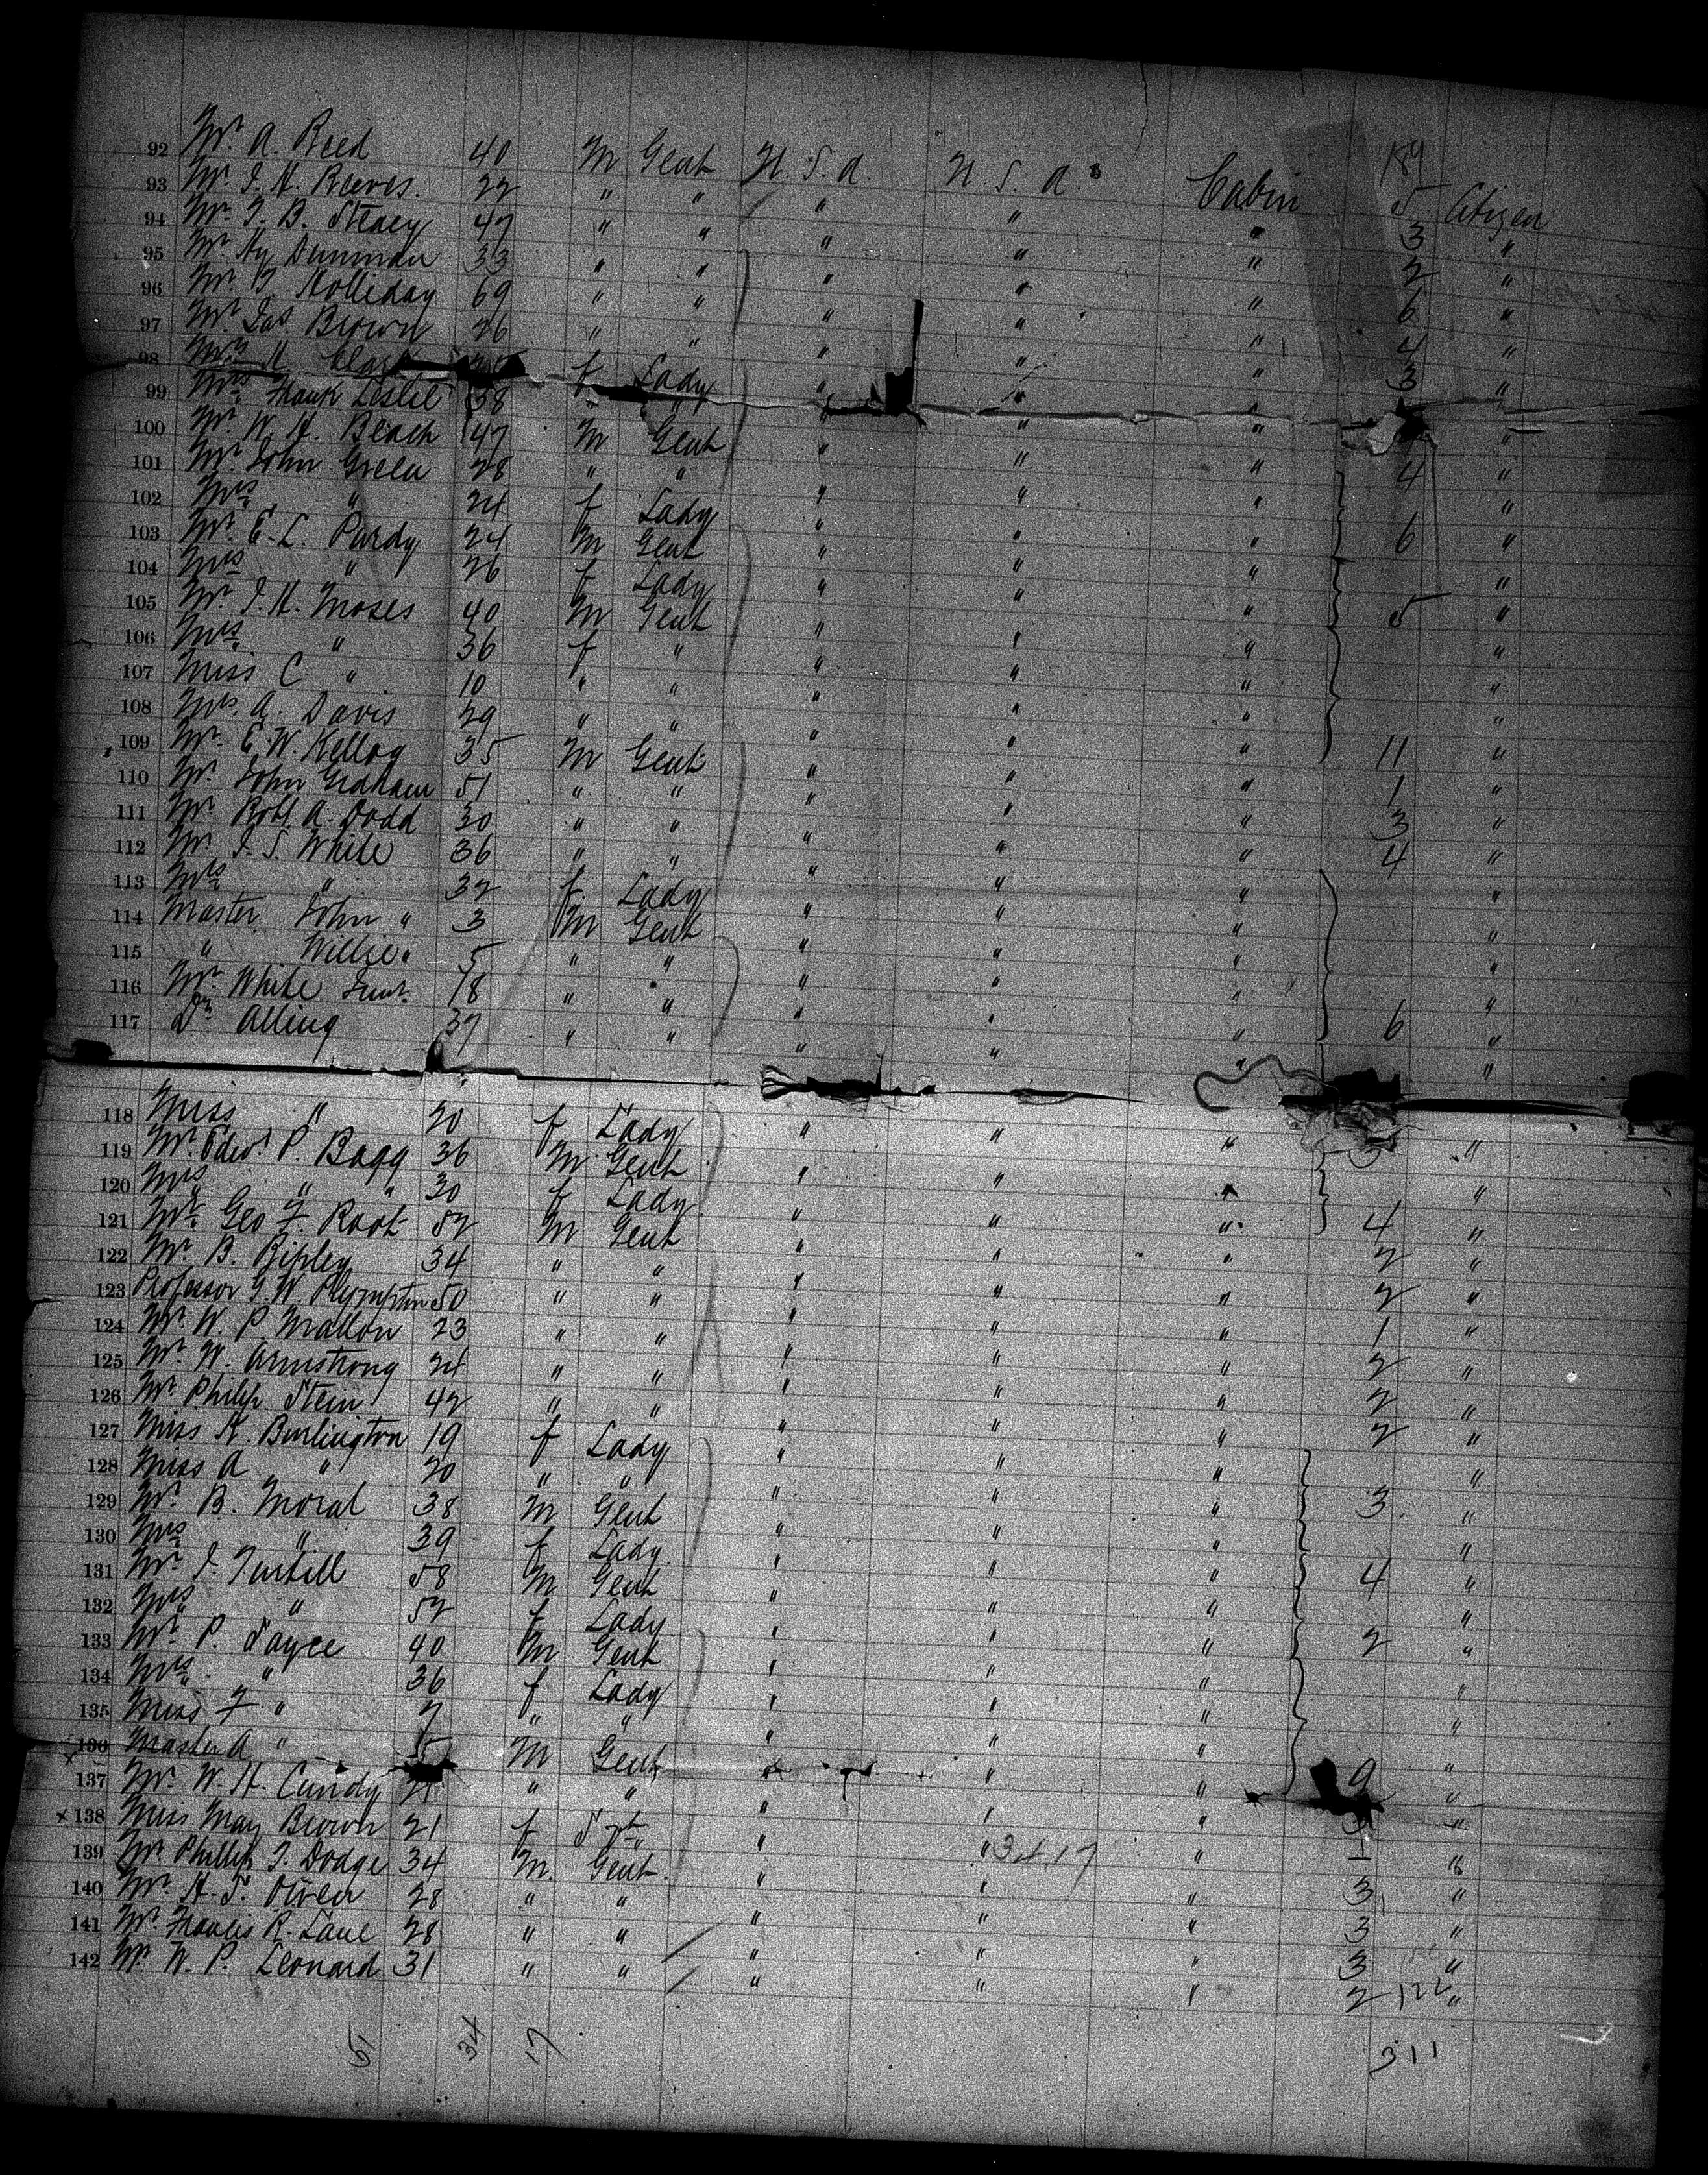 189
92 Mr. A. Reed 40 M Gent U. S. A. U. S. A. Cabin 5 Citizen
93 Mr. J. H. Reeves. 22 " " " " " 3 "
94 Mr. T. B. Steacy 47 " " " " " 2 "
95 Mr. Hy Dunman 33 " " " " " 6 "
96 Mr. T Holliday 69 " " " " " 4 "
97 Mr. Jas Brown 26 " " " " " 3 "
98 Mrs. H. Clark f Lady " " " "
99 Mrs. Frank Leslie 38 " " " " " "
100 Mr. W. H. Beach 47 M Gent " " " 4 "
101 Mr. John Green 28 " " " " " "
102 Mrs " 24 f Lady " " " 6 "
103 Mr. E. L. Purdy 24 M Gent " " " "
104 Mrs " 26 f Lady " " " 5 "
105 Mr. J. H. Moses 40 M Gent " " " "
106 Mrs " 36 f " " " " "
107 Miss C " 10 " " " " " "
108 Mrs. A. Davis 29 " " " " " 11 "
109 Mr. E. W. Kellog 35 M Gent " " " 1 "
110 Mr. John Graham 51 " " " " " 3 "
111 Mr. Robt. A. Dodd 30 " " " " " 4 "
112 Mr. J. S. White 36 " " " " " "
113 Mrs " 32 f Lady " " " "
114 Master John " 3 M Gent " " " "
115 " Willie " 5 " " " " " "
116 Mr. White Junr. 18 " " " " " 6 "
117 Dr. Alling 37 " " " " " "
118 Miss " 20 f Lady " " " "
119 Mr. Edwd. P. Bagg 36 M Gent " " " "
120 Mrs " " " 30 f Lady " " " 4 "
121 Mr. Geo F. Root 52 M Gent " " " 2 "
122 Mr. B. Ripley 34 " " " " " 2 "
123 Professor G. W. Plympton 50 " " " " " 1 "
124 Mr. W. P Mallon 23 " " " " " 2 "
125 Mr. W. Armstrong 24 " " " " " 2 "
126 Mr. Philip Stein 42 " " " " " 2 "
127 Miss K. Burlington 19 f Lady " " " "
128 Miss A " 20 " " " " " 3 "
129 Mr. B. Moral 38 M Gent " " " "
130 Mrs " 39 f Lady " " " 4 "
131 Mr. J. Tuthill 58 M Gent " " " "
132 Mrs " 52 f Lady " " " 2 "
133 Mr. P. Sayce 40 M Gent " " " "
134 Mrs. " 36 f Lady " " " "
135 Miss F " 7 " " " " " "
136 Master A " M Gent " " 9 "
x 137 Mr. W. H. Cundy 21 " " " " " "
x 138 Miss May Brown 21 f " " " 1 "
139 Mr. Phillip T. Dodge 34 M. Gent. " " 34.17 " 3 "
140 Mr. H. T. 28 " " " " " 3 "
141 Mr. Francis R. Lane 28 " " " " " 3 "
142 Mr. W. P. Leonard 31 " " " " " 2 122 "
51 34 17 311